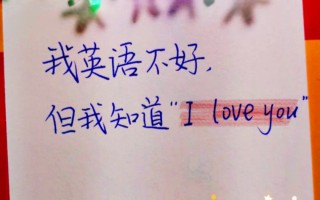 我英语不好，
但我知道“I love you”